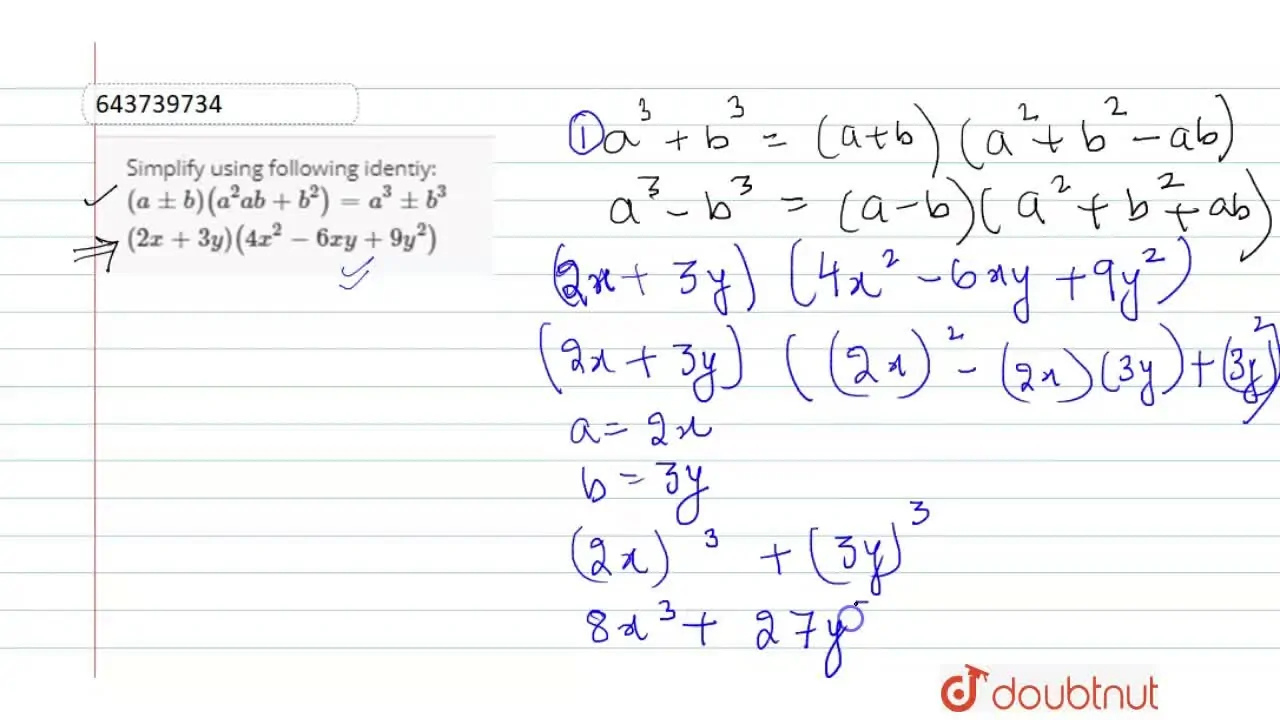 643739734
Simplify using following identiy:
(a ± b)(a²ab + b²) = a³ ± b³
(2x + 3y)(4x² − 6xy + 9y²)
① a³ + b³ = (a+b) (a² + b² − ab)
a³ − b³ = (a−b)(a² + b² + ab)
(2x + 3y) (4x² − 6xy + 9y²)
(2x + 3y) ((2x)² − (2x)(3y) + (3y)²)
a = 2x
b = 3y
(2x)³ + (3y)³
8x³ + 27y
doubtnut